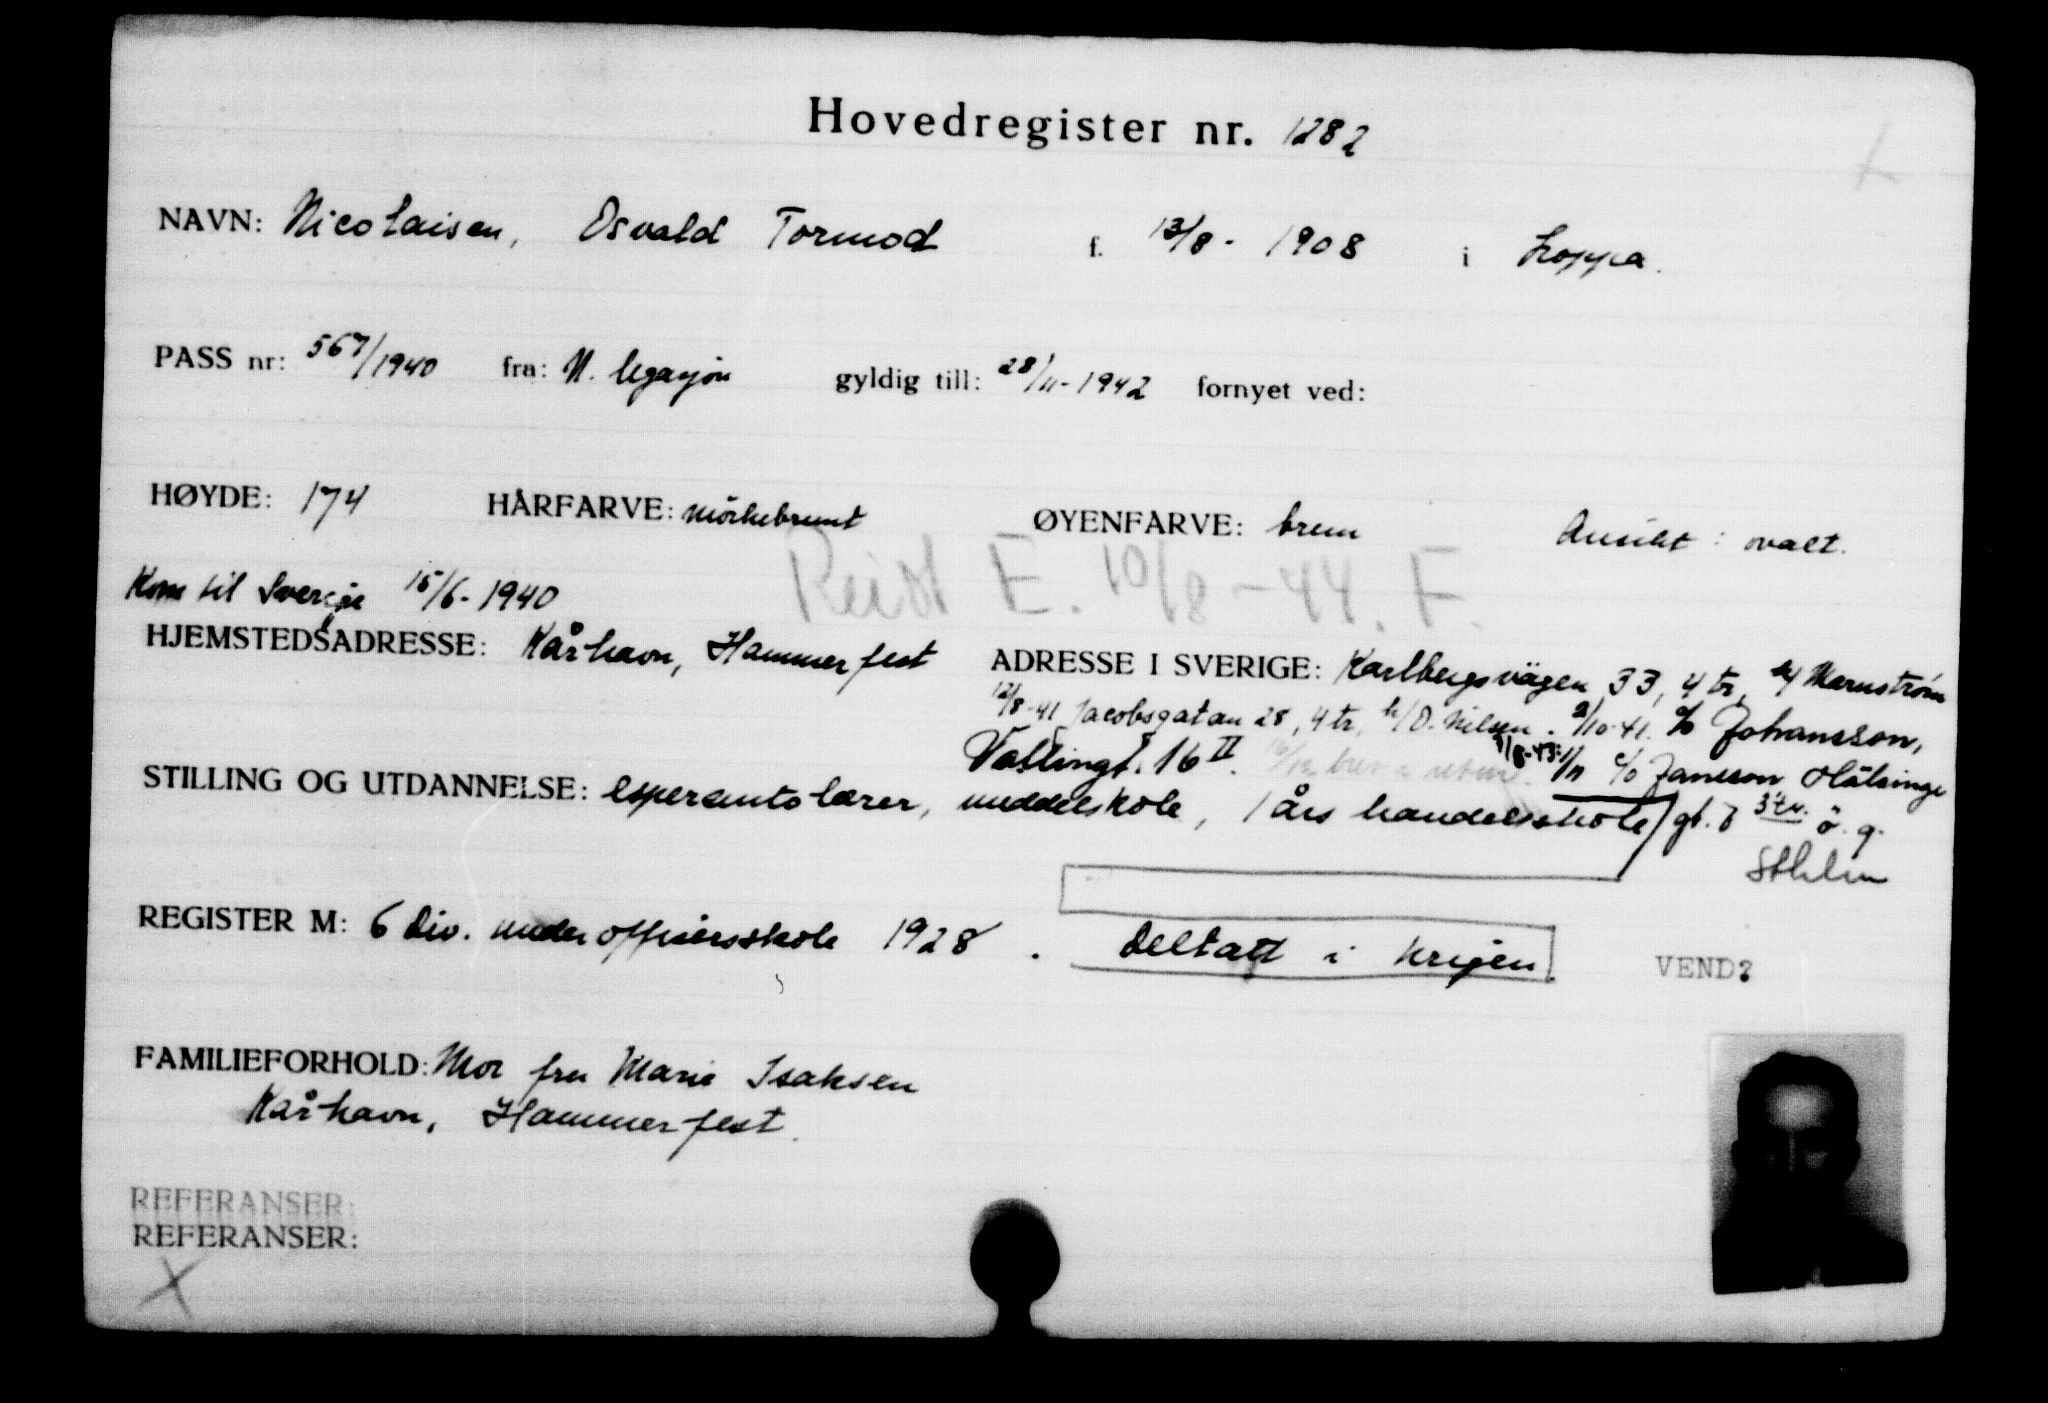 Hovedregister nr. 1282
NAVN: Nicolaisen, Osvald Tormod f. 13/8 - 1908 i Loppa.
PASS nr: 567/1940 fra: N. legasjon gyldig till: 28/11-1942 fornyet ved:
HØYDE: 174 HÅRFARVE: mörkebrunt ØYENFARVE: brun Ansikt: ovalt.
Reist E. 10/8-44. F.
Kom til Sverige 15/6-1940
HJEMSTEDSADRESSE: Kårhavn, Hammerfest ADRESSE I SVERIGE: Karlbergsvägen 33, 4 tr,
12/8-41 Jacobsgatan 28, 4 tr, h/O. Nilsen. 2/10-41. c/o Johansson,
Vallingt. 16 II. 1/11 c/o Jansson Hälsinge
STILLING OG UTDANNELSE: esperantolærer, middelskole, 1 års handelsskole / gt. 7 3 tr. ö. g.
Sthlm
REGISTER M: 6 Div. underoffisersskole 1928. Deltatt i krigen. VEND?
FAMILIEFORHOLD: Mor fru Marie Isaksen
Kårhavn, Hammerfest.
REFERANSER:
REFERANSER: